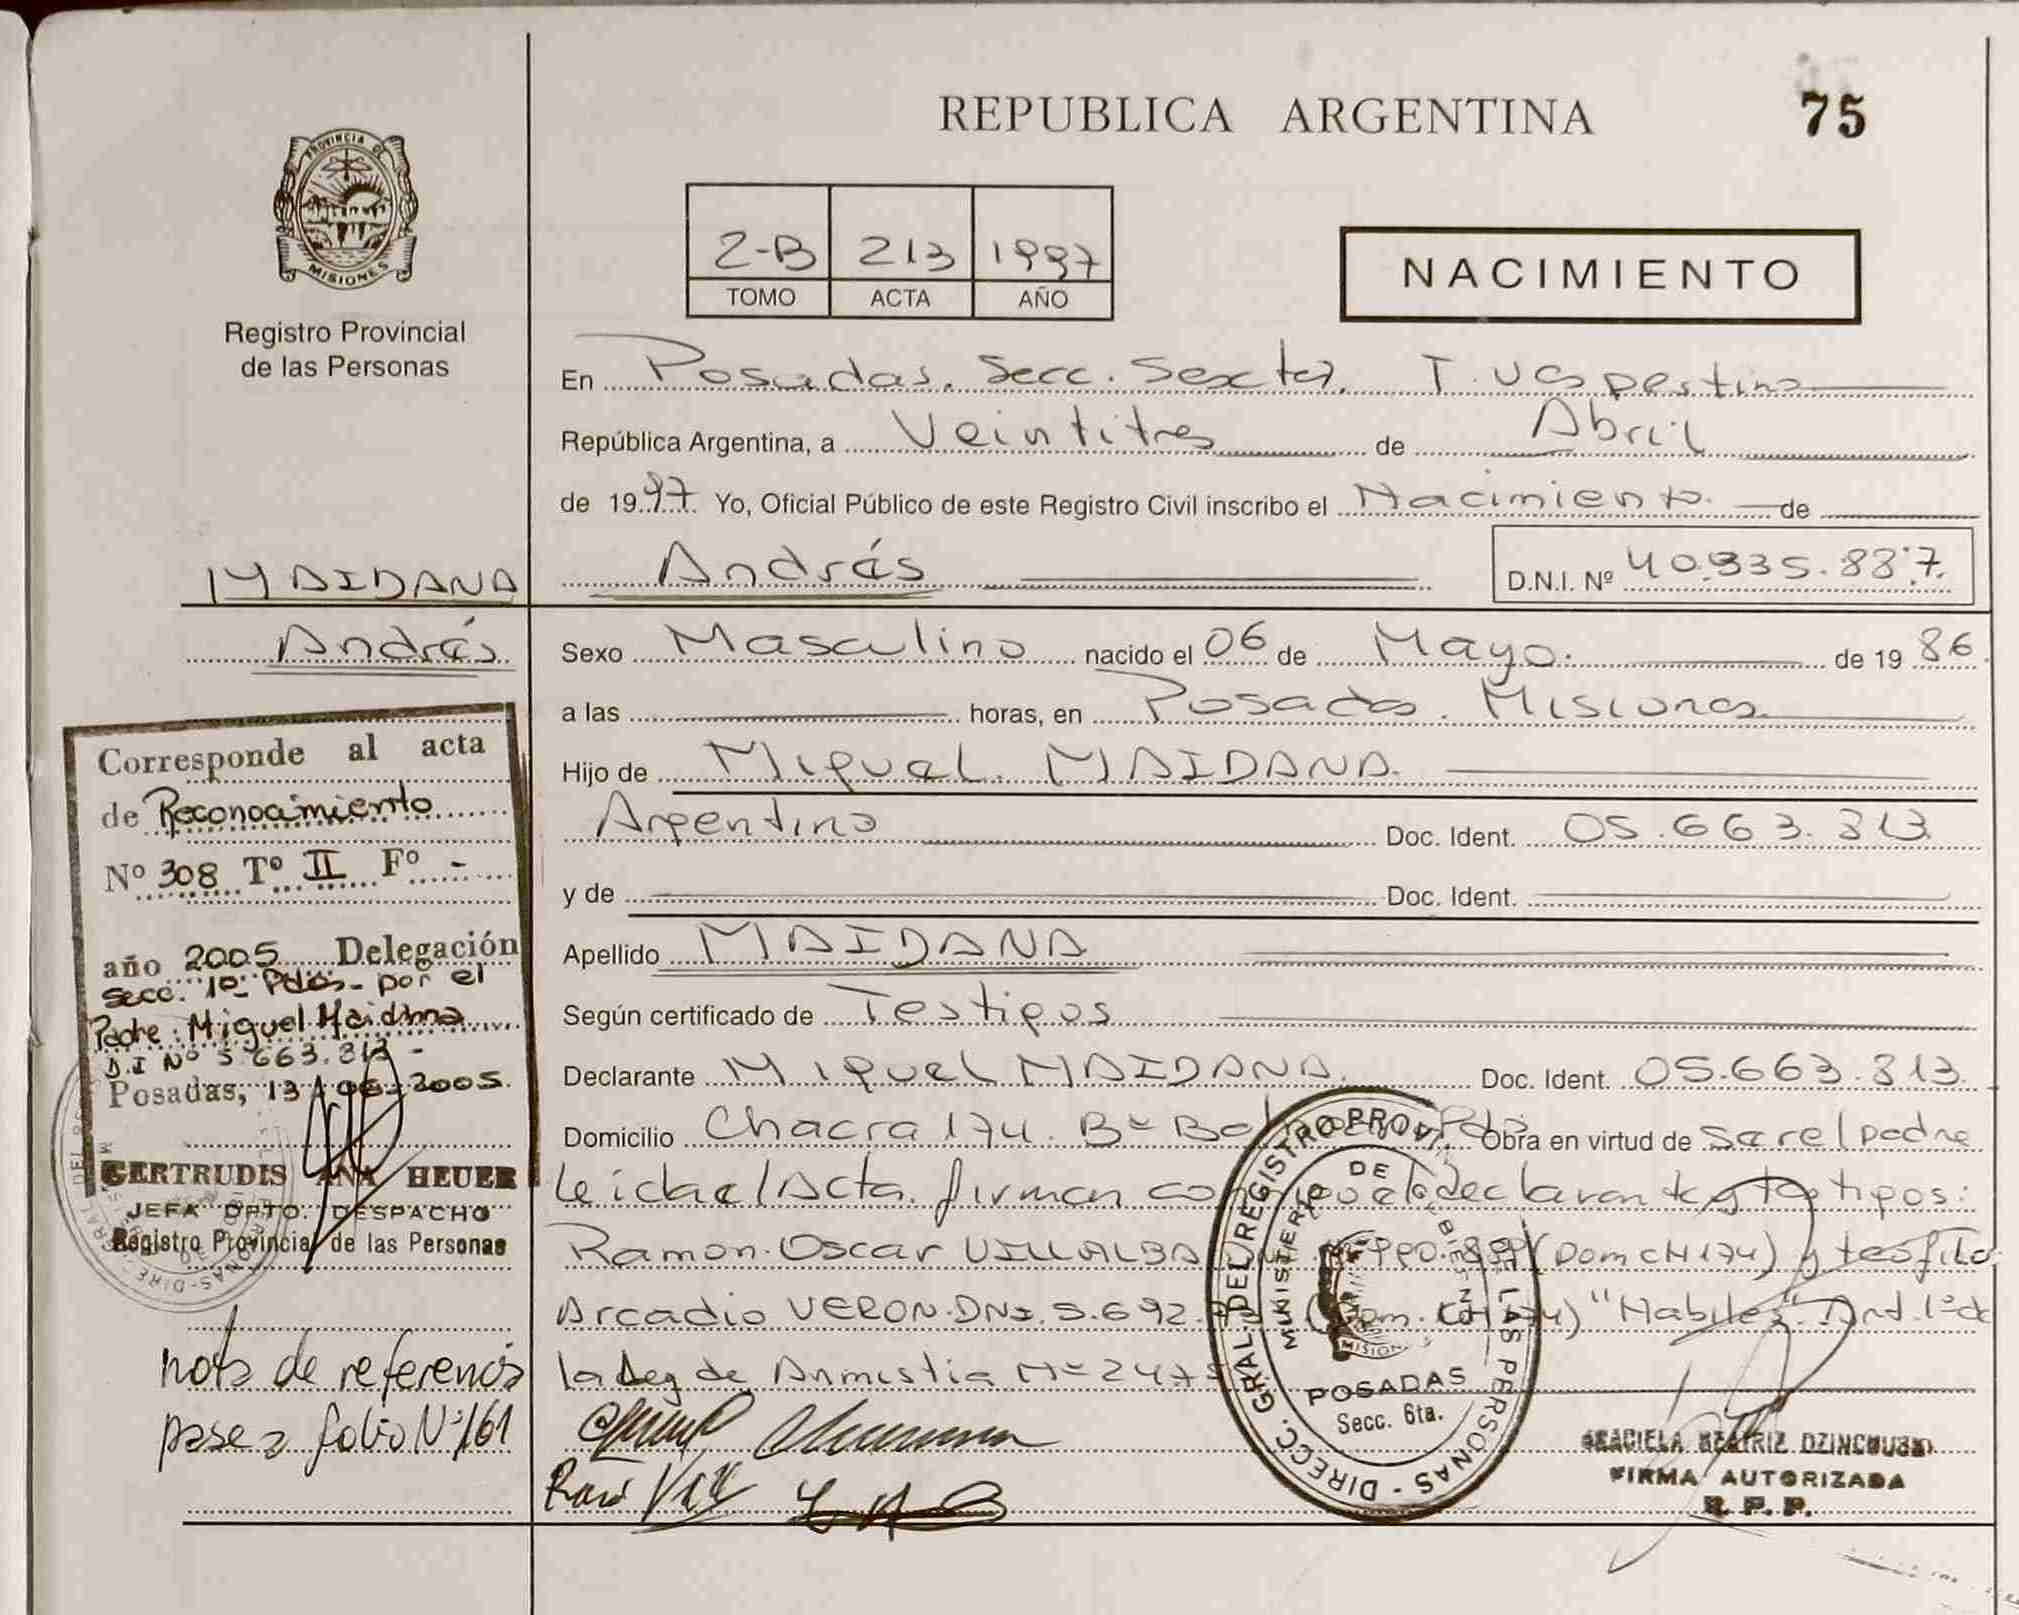 REPUBLICA ARGENTINA
75
PROVINCIA DE
MISIONES
Registro Provincial
de las Personas
2-B 213 1997
TOMO ACTA AÑO
NACIMIENTO
En Posadas. Secc. Sexta. T. Vespertino
República Argentina, a Veintitres de Abril
de 1997. Yo, Oficial Público de este Registro Civil inscribo el Nacimiento. de
MAIDANA
Andrés
Andrés
D.N.I. Nº 40.335.887.
Sexo Masculino nacido el 06 de Mayo. de 1986.
a las horas, en Posadas. Misiones.
Hijo de Miguel. MAIDANA.
Argentino Doc. Ident. 05.663.313
y de Doc. Ident.
Apellido MAIDANA
Según certificado de Testigos
Declarante Miguel MAIDANA. Doc. Ident. 05.663.313.
Domicilio Chacra 174. Bº Obra en virtud de ser el padre
Leida el Acta. firman declarante y testigos:
Ramon. Oscar VILLALBA (Dom CH 174) y teofilo
Arcadio VERON. DNI. 5.692. (Dom. CH 174) "Habiles". Art. 1º de
la Ley de Amnistia Nº 2475
Corresponde al acta
de Reconocimiento
Nº 308 Tº II Fº -
año 2005 Delegación
Secc. 1º Pdas- por el
Padre: Miguel Maidana
D.I Nº 5.663.313 -
Posadas, 13 06 2005.
GERTRUDIS ANA HEUER
JEFA DPTO. DESPACHO
Registro Provincial de las Personas
nota de referencia
pase a folio Nº 161
DIRECC. GRAL. DEL REGISTRO PROV. DE LAS PERSONAS
MINISTERIO DE
POSADAS
Secc. 6ta.
GRACIELA BEATRIZ
FIRMA AUTORIZADA
R. P. P.